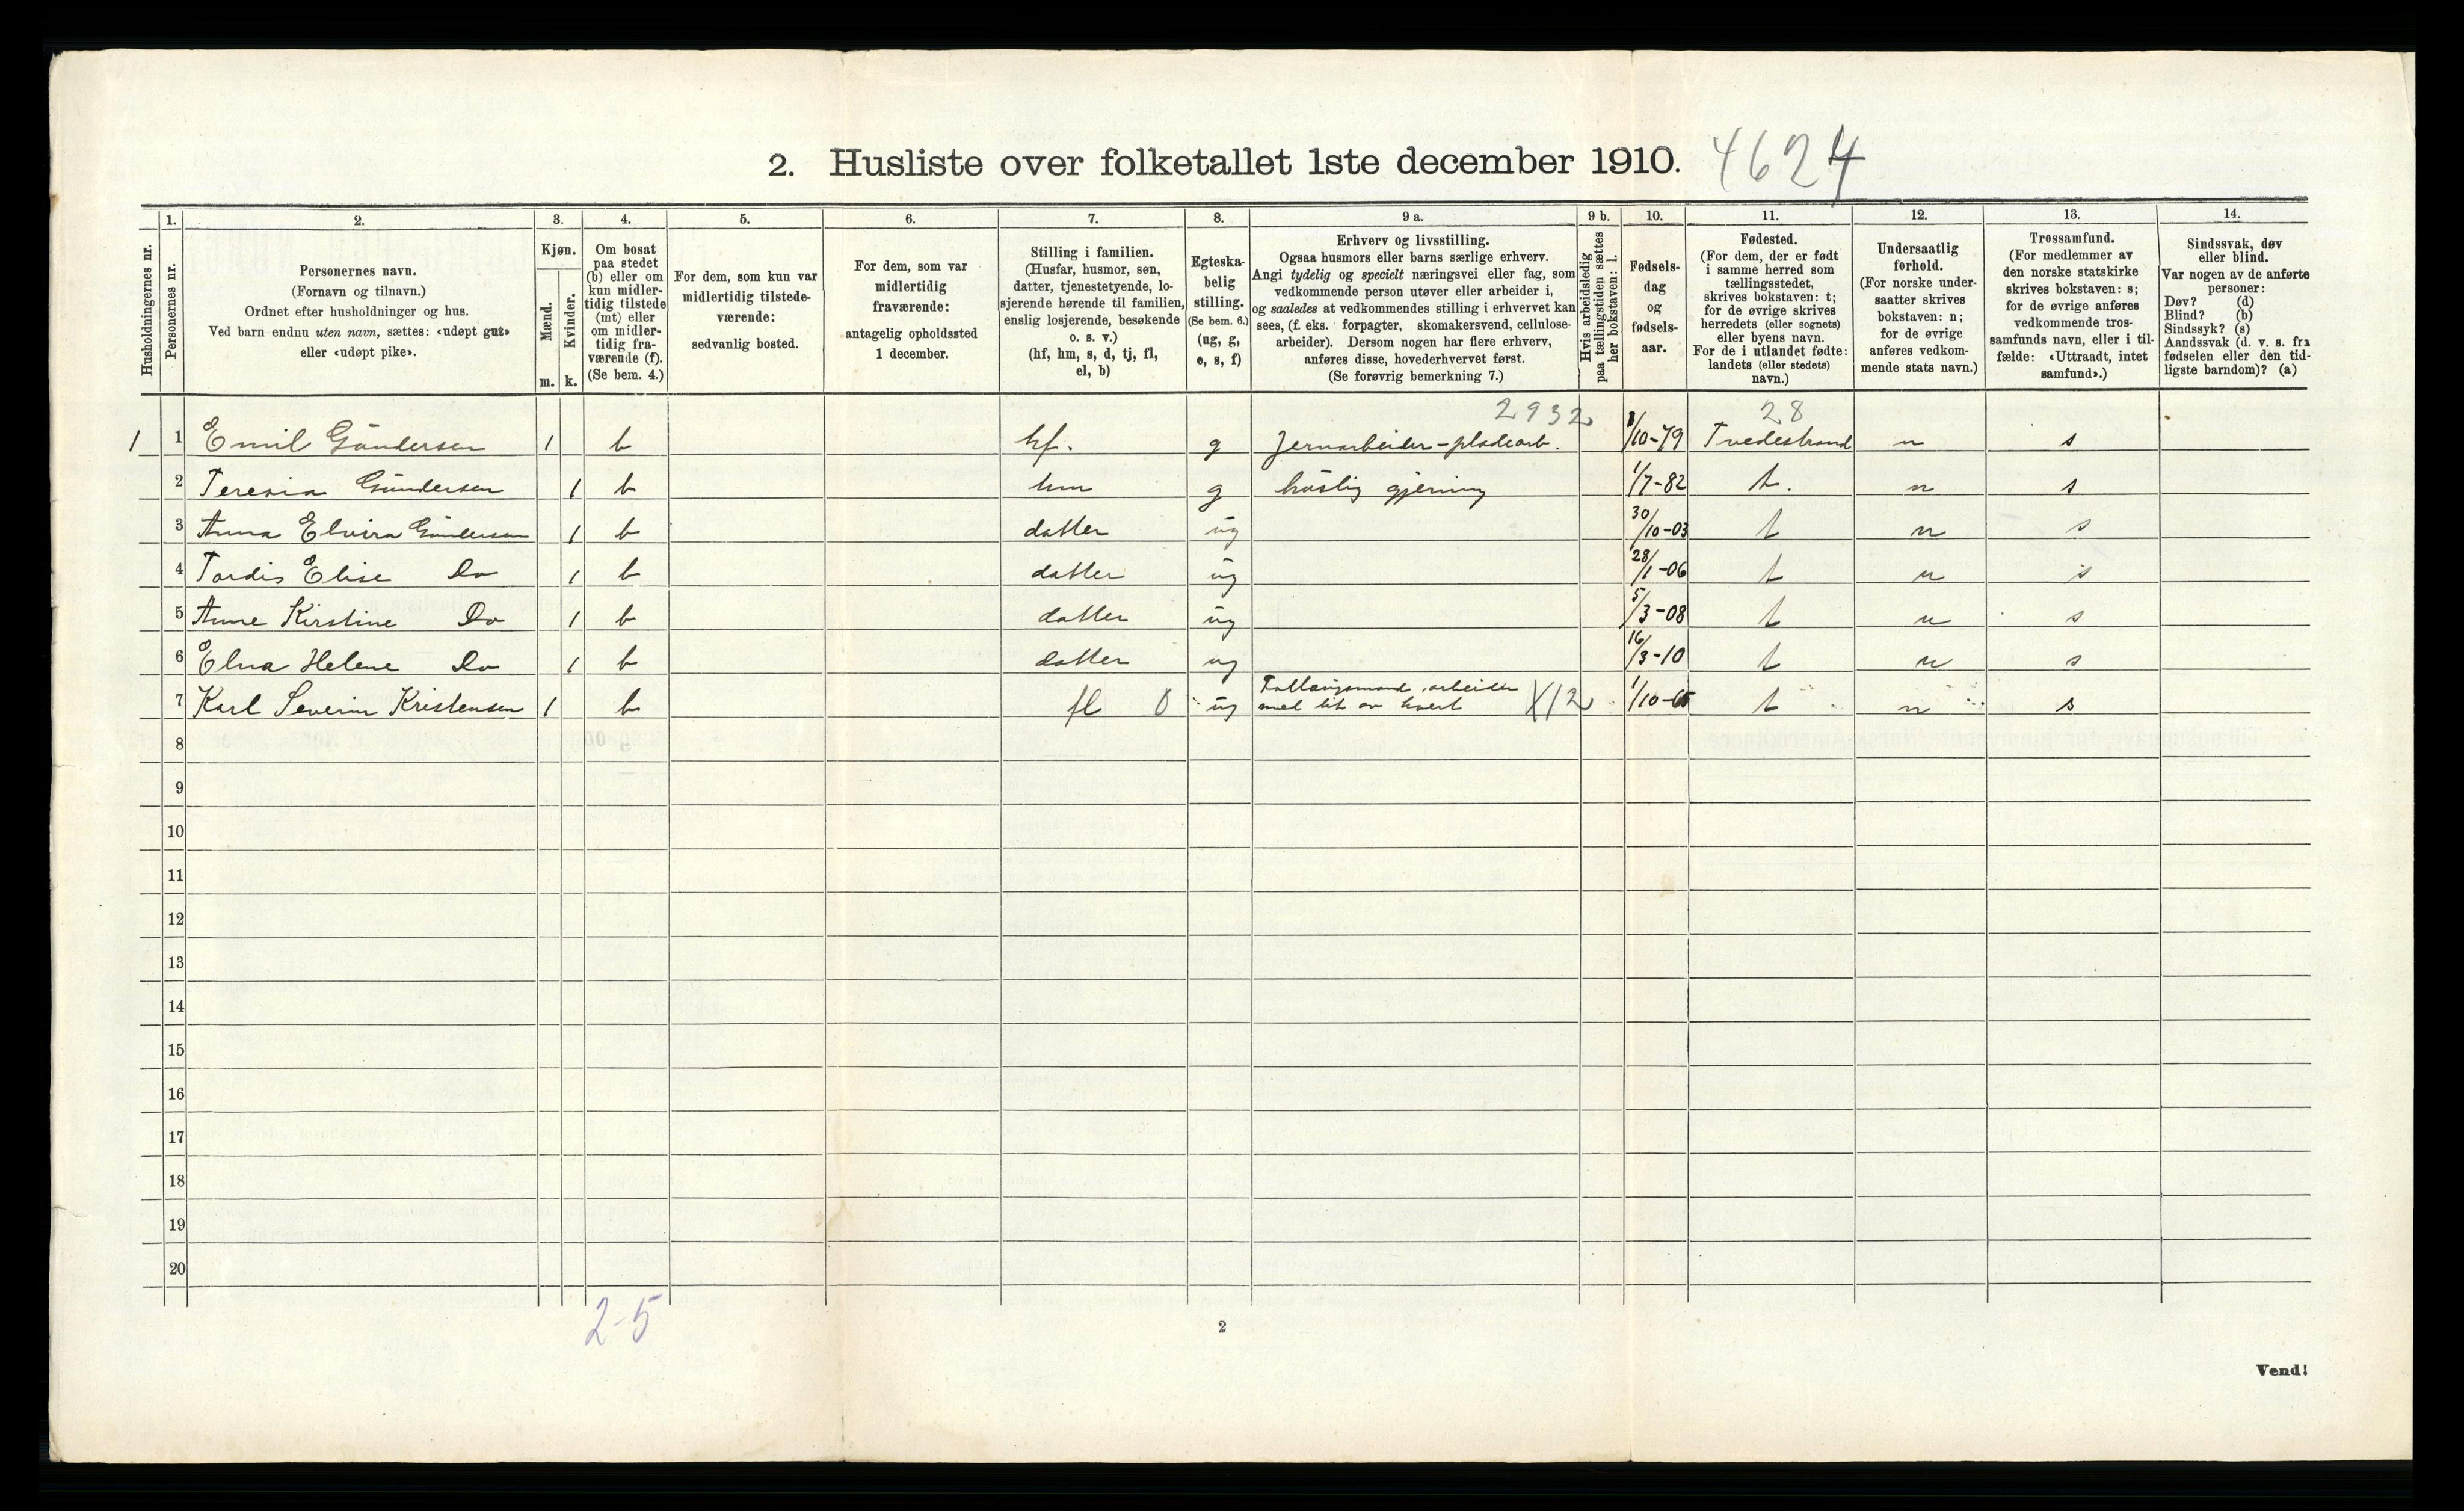 2. Husliste over folketallet 1ste december 1910. 4624
Husholdningernes nr.
1.
Personernes nr.
2.
Personernes navn.
(Fornavn og tilnavn.)
Ordnet efter husholdninger og hus.
Ved barn endnu uten navn, sættes: «udøpt gut»
eller «udøpt pike».
3.
Kjøn.
Mænd.
Kvinder.
m. k.
4.
Om bosat
paa stedet
(b) eller om
kun midler-
tidig tilstede
(mt) eller
om midler-
tidig fra-
værende (f).
(Se bem. 4.)
5.
For dem, som kun var
midlertidig tilstede-
værende:
sedvanlig bosted.
6.
For dem, som var
midlertidig
fraværende:
antagelig opholdssted
1 december.
7.
Stilling i familien.
(Husfar, husmor, søn,
datter, tjenestetyende, lo-
sjerende hørende til familien,
enslig losjerende, besøkende
o. s. v.)
(hf, hm, s, d, tj, fl,
el, b)
8.
Egteska-
belig
stilling.
(Se bem. 6.)
(ug, g,
e, s, f)
9 a.
Erhverv og livsstilling.
Ogsaa husmors eller barns særlige erhverv.
Angi tydelig og specielt næringsvei eller fag, som
vedkommende person utøver eller arbeider i,
og saaledes at vedkommendes stilling i erhvervet kan
sees, (f. eks. forpagter, skomakersvend, cellulose-
arbeider). Dersom nogen har flere erhverv,
anføres disse, hovederhvervet først.
(Se forøvrig bemerkning 7.)
9 b.
Hvis arbeidsledig
paa tællingstiden sættes
her bokstaven: l.
10.
Fødsels-
dag
og
fødsels-
aar.
11.
Fødested.
(For dem, der er født
i samme herred som
tællingsstedet,
skrives bokstaven: t;
for de øvrige skrives
herredets (eller sognets)
eller byens navn.
For de i utlandet fødte:
landets (eller stedets)
navn.)
12.
Undersaatlig
forhold.
(For norske under-
saatter skrives
bokstaven: n;
for de øvrige
anføres vedkom-
mende stats navn.)
13.
Trossamfund.
(For medlemmer av
den norske statskirke
skrives bokstaven: s;
for de øvrige anføres
vedkommende tros-
samfunds navn, eller i til-
fælde: «Uttraadt, intet
samfund».)
14.
Sindssvak, døv
eller blind.
Var nogen av de anførte
personer:
Døv? (d)
Blind? (b)
Sindssyk? (s)
Aandssvak (d. v. s. fra
fødselen eller den tid-
ligste barndom)? (a)
2932 28
1 1 Emil Gundersen 1 b hf. g Jernarbeider - pladearb. /10-79 Tvedestrand n s
2 Teresia Gundersen 1 b hm g huslig gjerning 1/7-82 t. n s
3 Anna Elvira Gundersen 1 b datter ug 30/10-03 t n s
4 Tordis Elise Do 1 b datter ug 28/1-06 t n s
5 Anne Kirstine Do 1 b datter ug 5/3-08 t n s
6 Elna Helene Do 1 b datter ug 16/3-10 t n s
7 Karl Severin Kristensen 1 b fl 0 ug Fattigsmand, arbeider
med lit av hvert X12 1/10-65 t n s
8
9
10
11
12
13
14
15
16
17
18
19
20
2-5
2
Vend!